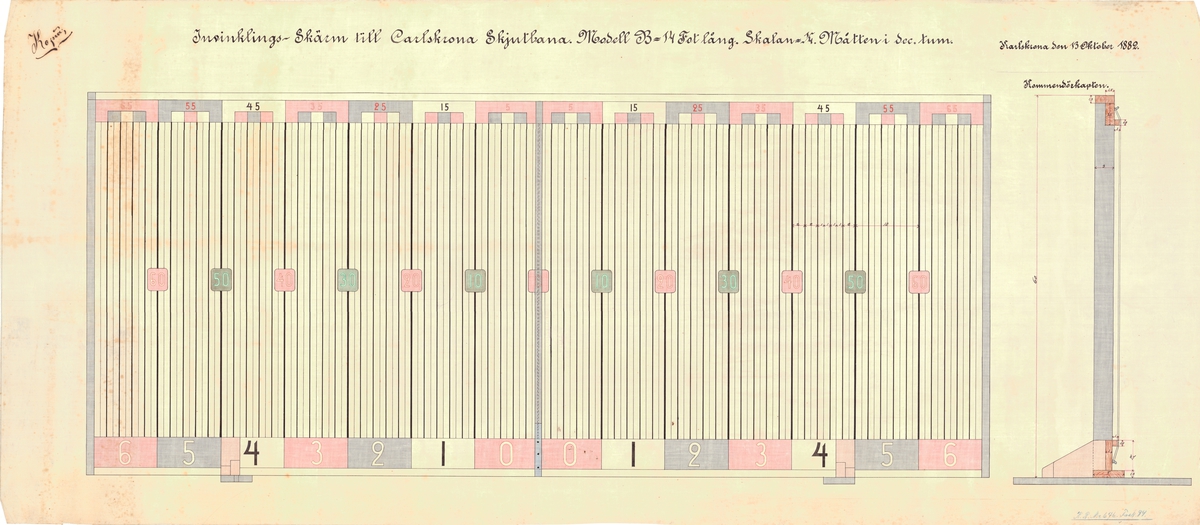 Kopia,
Invinklings-Skärm till Carlskrona Skjutbana. Modell B=14 Fot lång. Skalan=¼. Måtten i dec. tum.
Karlskrona den 13 Oktober 1882.
Kommendörkapten.
65 55 45 35 25 15 5 5 15 25 35 45 55 65
60 50 40 30 20 10 0 10 20 30 40 50 60
6 5 4 3 2 1 0 0 1 2 3 4 5 6